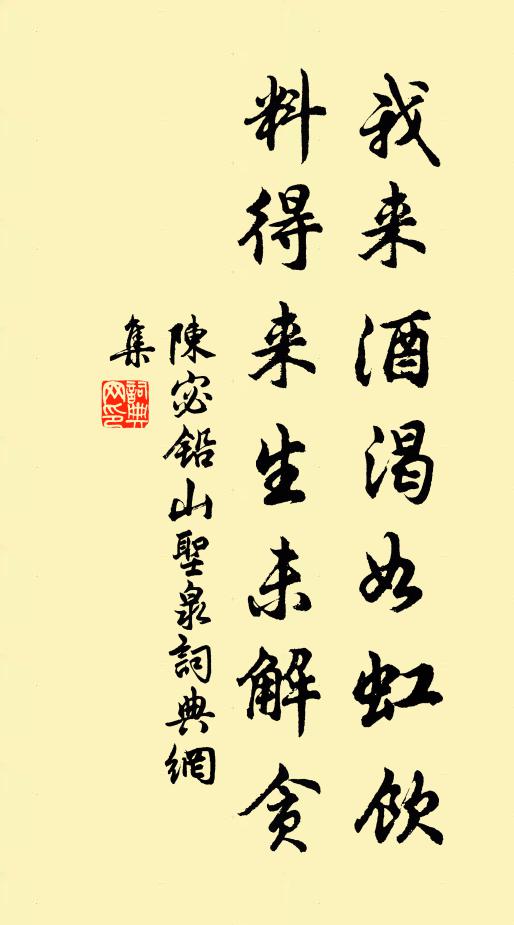 我来酒渴如虹飲
料得来生未解贪
陳宓鉛山聖泉詞典網
集
詞典网印